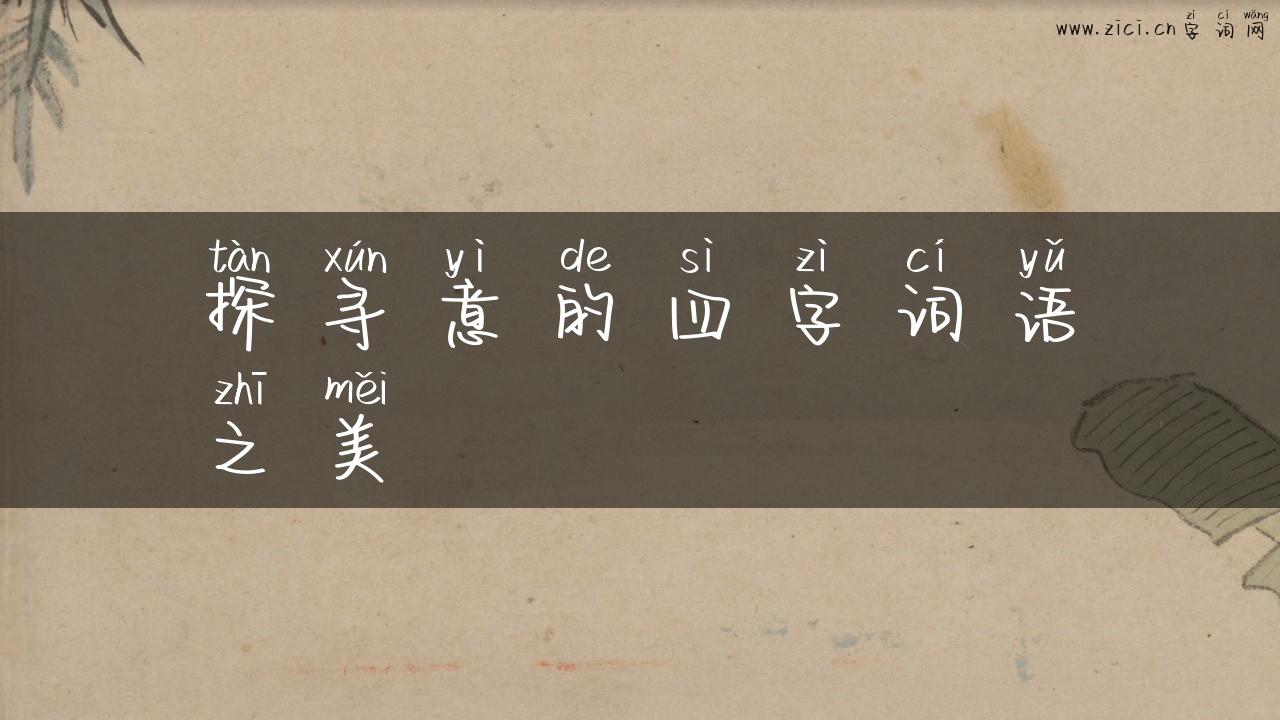 zì cí wǎng
www.zici.cn 字词网
tàn xún yì de sì zì cí yǔ
探寻意的四字词语
zhī měi
之美